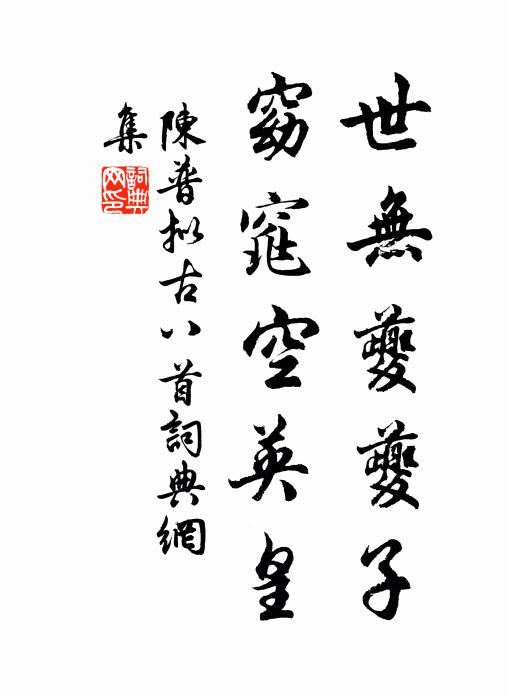 世無夔夔子
窈窕空英皇
陳普拟古八首詞典網
集
詞典网印